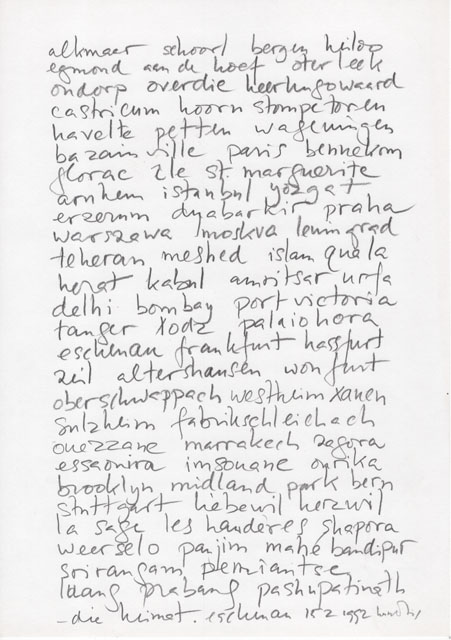 alkmaar schoorl bergen heiloo
egmond aan de hoef oterleek
ondorp overdie heerhugowaard
castricum hoorn stompetoren
havelte petten wageningen
bazainville paris bennekom
florac ile st. marguerite
arnhem istanbul yozgat
erzerum dyabarkir praha
warszawa moskva leningrad
teheran meshed islam quala
herat kabul amritsar urfa
delhi bombay port victoria
tanger łodz palaiohora
eschenau frankfurt hassfurt
zeil altershausen wonfurt
oberschwappach westheim xanen
sulzheim fabrikschleichach
ouezzane marrakech zagora
essaouira imsouane ourika
brooklyn midland park bern
stuttgart liebewil herzwil
la sage les hauderes shapora
weerselo panjim mahé bandipur
srirangam
luang prabang pashupatinath
– die heimat. eschenau 15.2 1992